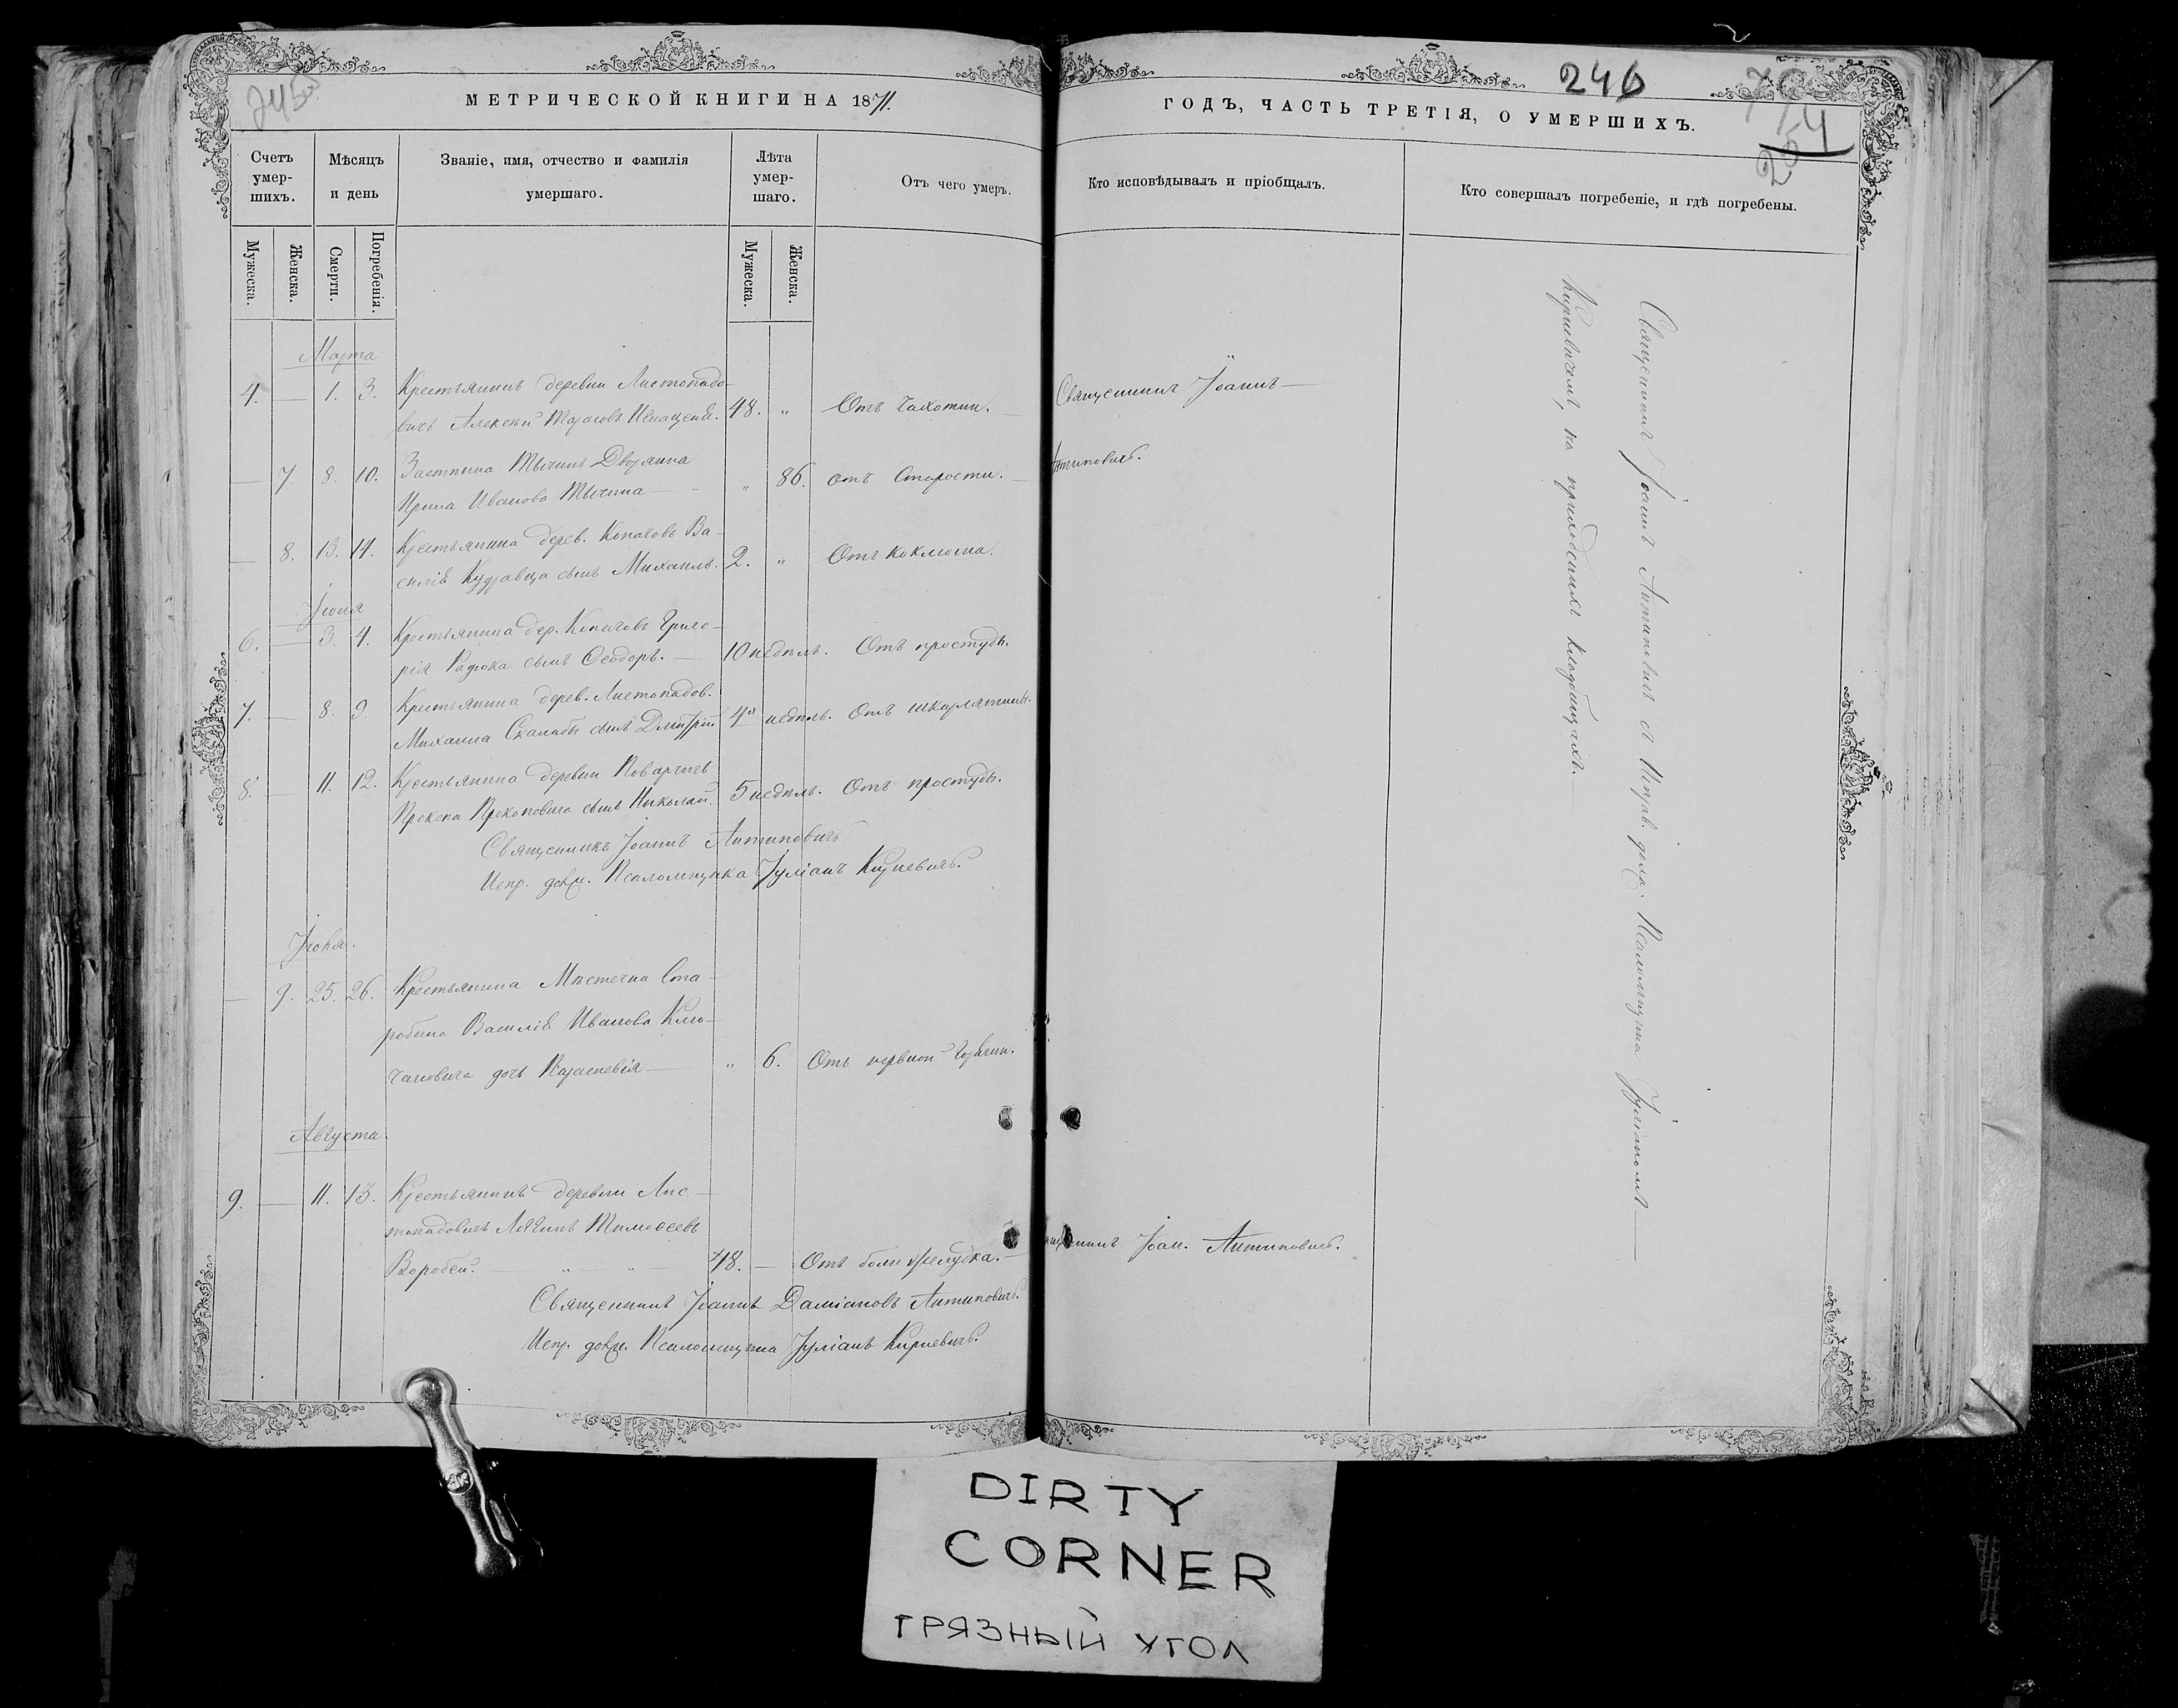 245
МЕТРИЧЕСКОЙ КНИГИ НА 1871.
Счетъ умер-шихъ.
Мѣсяцъ и день
Званіе, имя, отчество и фамилія умершаго.
Лѣта умер-шаго.
Отъ чего умеръ.
Мужеска.
Женска.
Смерти.
Погребенія.
Мужеска.
Женска.
Марта
4. — 1. 3. Крестьянинъ деревни Листопадо-
вичъ Алексѣй Тарасовъ 48. „ Отъ чахотки. —
— 7. 8. 10. Застѣнка Тычинъ Дворянка
Ирина Иванова Тычина — „ 86. отъ старости. —
— 8. 13. 14. Крестьянина дерев. Копачовъ Ва-
силія Кудравца сынъ Михаилъ. 2. „ Отъ коклюша.
Іюня
6. — 3. 4. Крестьянина дер. Копачовъ Григо-
рія сынъ Ѳеодоръ. — 10 недѣль. Отъ простуды.
7. — 8. 9. Крестьянина дерев. Листопадов.
Михаила сынъ Дмитрій 4 недѣль. Отъ шкарлятины.
8. — 11. 12. Крестьянина деревни Поварчичъ
Прокопа Прокоповича сынъ Николай. 5 недѣль. Отъ простуды.
Священникъ Іоаннъ Антиповичъ
Испр. долж. Псаломщика Іуліанъ Кирневичъ.
Іюня.
— 9. 25. 26. Крестьянина Мѣстечка Ста-
робина Василія Иванова Клю-
чановича дочь Параскевія — „ 6. Отъ нервной горячки.
Августа.
9. — 11. 13. Крестьянинъ деревни Лис-
топадовичъ Тимоѳеевъ
Воробей. — „ — „ — 48. — Отъ боли желудка. —
Священникъ Іоаннъ Даміановъ Антиповичъ.
Испр. долж. Псаломщика Іуліанъ Кирневичъ.
246
254
ГОДЪ, ЧАСТЬ ТРЕТІЯ, О УМЕРШИХЪ.
Кто исповѣдывалъ и пріобщалъ.
Кто совершалъ погребеніе, и гдѣ погребены.
Священникъ Іоаннъ —
Антиповичъ.
Іоан. Антиповичъ.
Священникъ Іоаннъ Антиповичъ съ Исправ. долж. Псаломщика Іуліаномъ —
Кирневичемъ, на приходскихъ кладбищахъ. —
DIRTY
CORNER
ГРЯЗНЫЙ УГОЛ